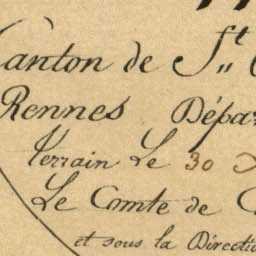 Canton de St.
Rennes Dépar
Terrain Le 30
Le Comte de
et sous la Directi